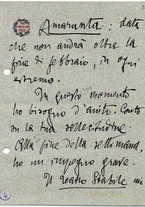 Amaranta: data
che non andrà oltre la
fine di febbraio, in ogni
estremo.
In questo momento
ho bisogno d'aiuto. Conto
su la tua sollecitudine.
Alla fine della settimana,
ho un impegno grave.
Il Teatro Stabile mi